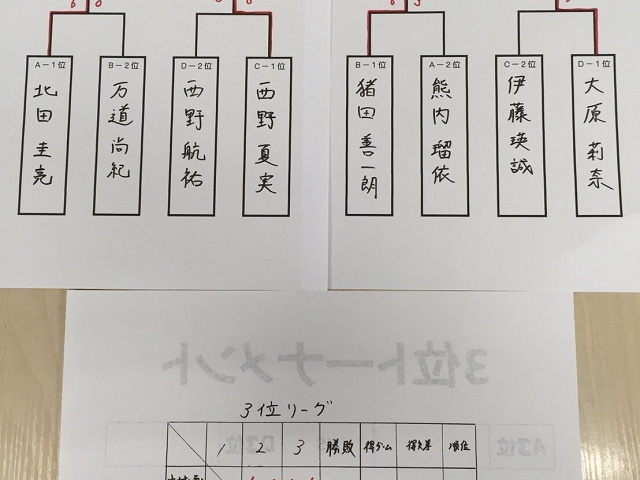 A－1位
北田 圭亮
B－2位
万道 尚紀
D－2位
西野 航祐
C－1位
西野 夏実
B－1位
猪田 善一朗
A－2位
熊内 瑠依
C－2位
伊藤 瑛誠
D－1位
大原 莉奈
3位トーナメント
3位リーグ
1 2 3 勝敗 得ゲーム 得失差 順位
A3位 D3位